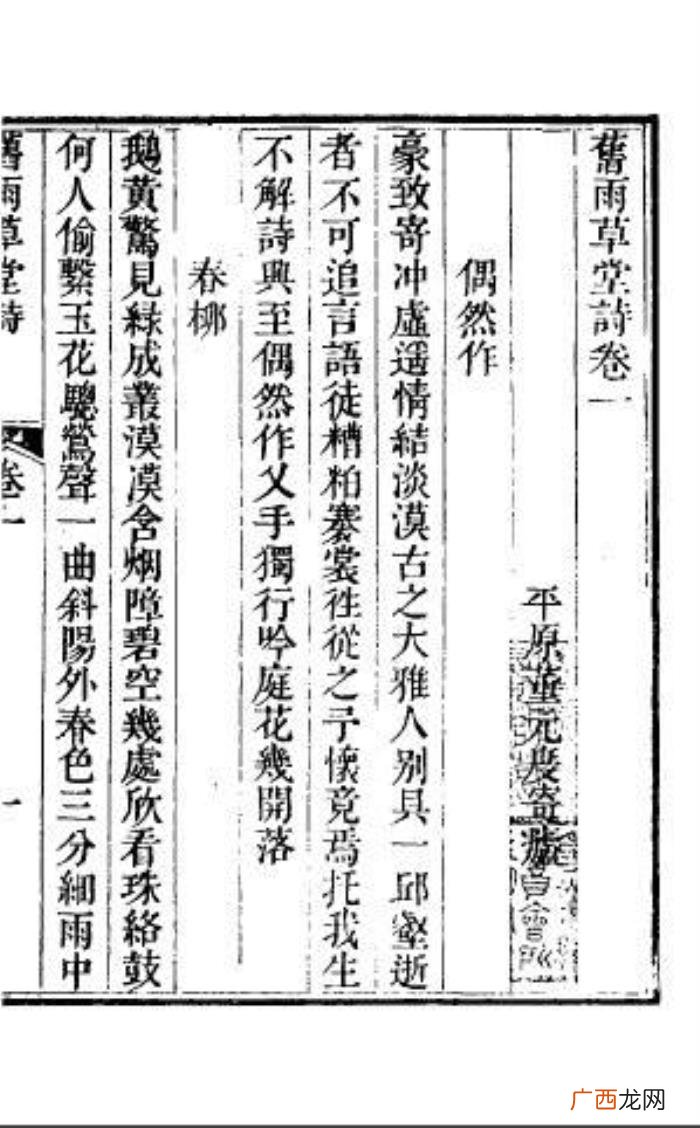 舊雨草堂詩卷一
平原董元度寄廬
偶然作
豪致寄冲虛遥情結淡漠古之大雅人别具一邱壑逝
者不可追言語徒糟粕褰裳徃從之予懷竟焉托我生
不解詩興至偶然作叉手獨行吟庭花幾開落
春栁
鵝黃驚見綠成叢漠漠含烟障碧空幾處欣看珠絡鼓
何人偷繫玉花驄鶯聲一曲斜陽外春色三分細雨中
舊雨草堂詩
卷一
一
广西龙网